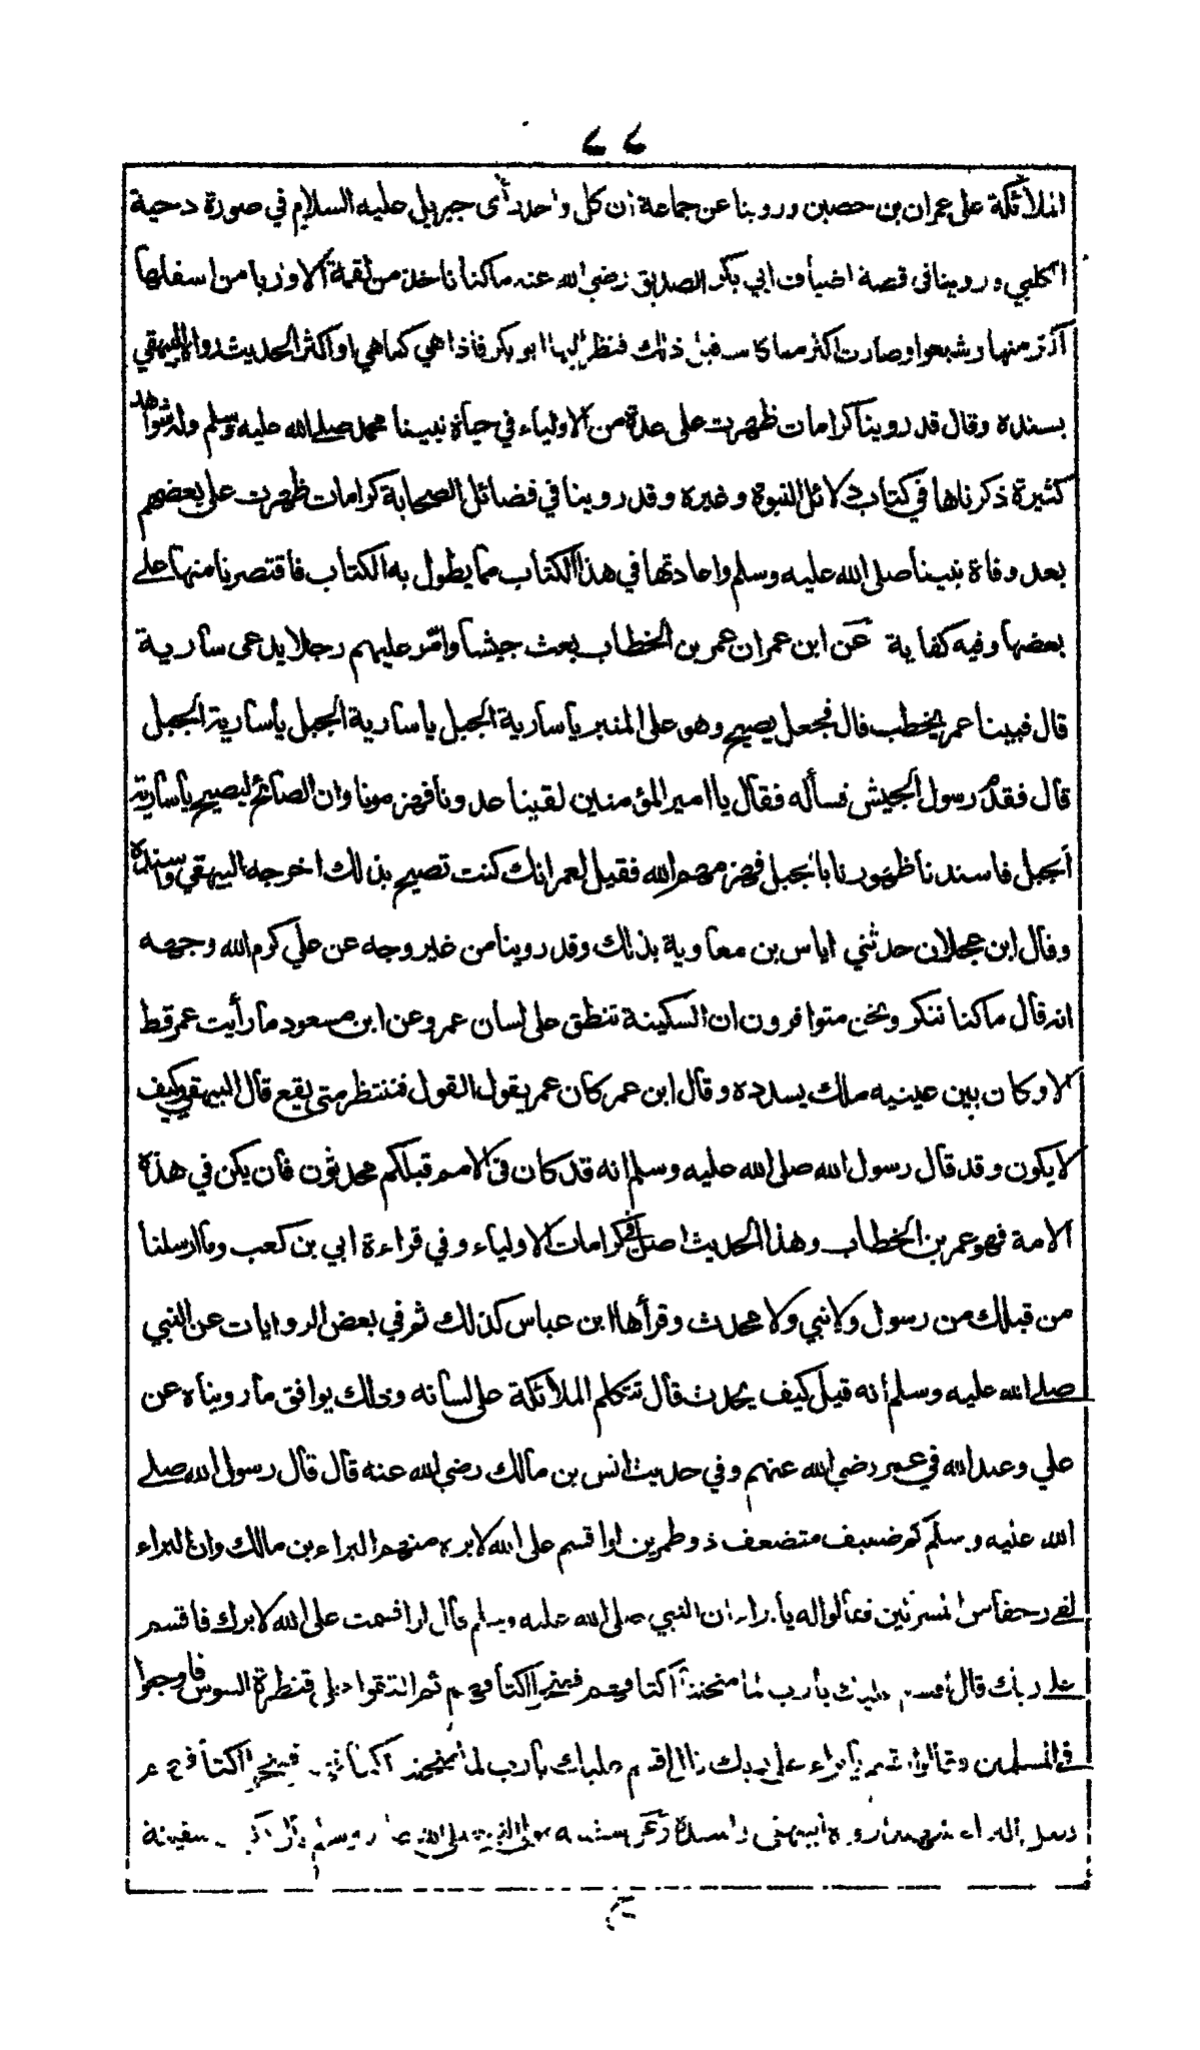 ٤٤
الملائكة على عمران بن حصين وروينا عن جماعة ان كل واحد رأى جبريل عليه السلام في صورة دحية
الكلبي وروينا فى قصة اضياف ابي بكر الصديق رضي الله عنه ما كنا ناخذ من لقمة الا وربا من اسفلها
اكثر منها وشبعوا وصارت اكثر مما كانت قبل ذلك فنظر اليها ابو بكر فاذا هي كما هي او اكثر الحديث رواه البيهقي
بسنده وقال قد روينا كرامات ظهرت على عدة من الاولياء في حياة نبينا محمد صلى الله عليه وسلم وله شواهد
كثيرة ذكرناها في كتاب دلائل النبوة وغيره وقد روينا في فضائل الصحابة كرامات ظهرت على بعضهم
بعد وفاة نبينا صلى الله عليه وسلم واعادتها في هذا الكتاب مما يطول به الكتاب فاقتصرنا منها على
بعضها وفيه كفاية عن ابن عمران عمر بن الخطاب بعث جيشا وامّر عليهم رجلا يدعى سارية
قال فبينا عمر يخطب قال فجعل يصيح وهو على المنبر يا سارية الجبل يا سارية الجبل يا سارية الجبل
قال فقدم رسول الجيش فسأله فقال يا امير المؤمنين لقينا عدونا فهزمونا وان الصائح ليصيح يا سارية
الجبل فاسندنا ظهورنا بالجبل فهزمهم الله فقيل لعمر انك كنت تصيح بذلك اخرجه البيهقي واسنده
وقال ابن عجلان حدثني اياس بن معاوية بذلك وقد روينا من غير وجه عن علي كرم الله وجهه
انه قال ما كنا ننكر ونحن متوافرون ان السكينة تنطق على لسان عمر وعن ابن مسعود ما رأيت عمر قط
الا وكان بين عينيه ملك يسدده وقال ابن عمر كان عمر يقول القول فننتظر متى يقع قال البيهقي وكيف
لا يكون وقد قال رسول الله صلى الله عليه وسلم انه قد كان في الامم قبلكم محدثون فان يكن في هذه
الامة فهو عمر بن الخطاب وهذا الحديث اصل في كرامات الاولياء وفي قراءة ابي بن كعب وما ارسلنا
من قبلك من رسول ولا نبي ولا محدث وقرأها ابن عباس كذلك ثم في بعض الروايات عن النبي
صلى الله عليه وسلم أنه قيل كيف يحدث قال تتكلم الملائكة على لسانه وذلك يوافق ما رويناه عن
علي وعبد الله في عمر رضي الله عنهم وفي حديث انس بن مالك رضي الله عنه قال قال رسول الله صلى
الله عليه وسلم كم ضعيف متضعف ذو طمرين لو اقسم على الله لابره منهم البراء بن مالك وان البراء
لقي زحفا من المشركين فقالوا له يا براء ان النبي صلى الله عليه وسلم قال لو اقسمت على الله لابرك فاقسم
على ربك قال اقسم عليك يا رب لما منحتنا اكتافهم فمنحوا اكتافهم ثم التقوا على قنطرة السوس فاوجعوا
في المسلمين فقالوا اقسم يا براء على ربك قال اقسم عليك يا رب لما منحتنا اكتافهم فمنحوا اكتافهم
البراء رواه البيهقي صلى الله وسلم سفينة